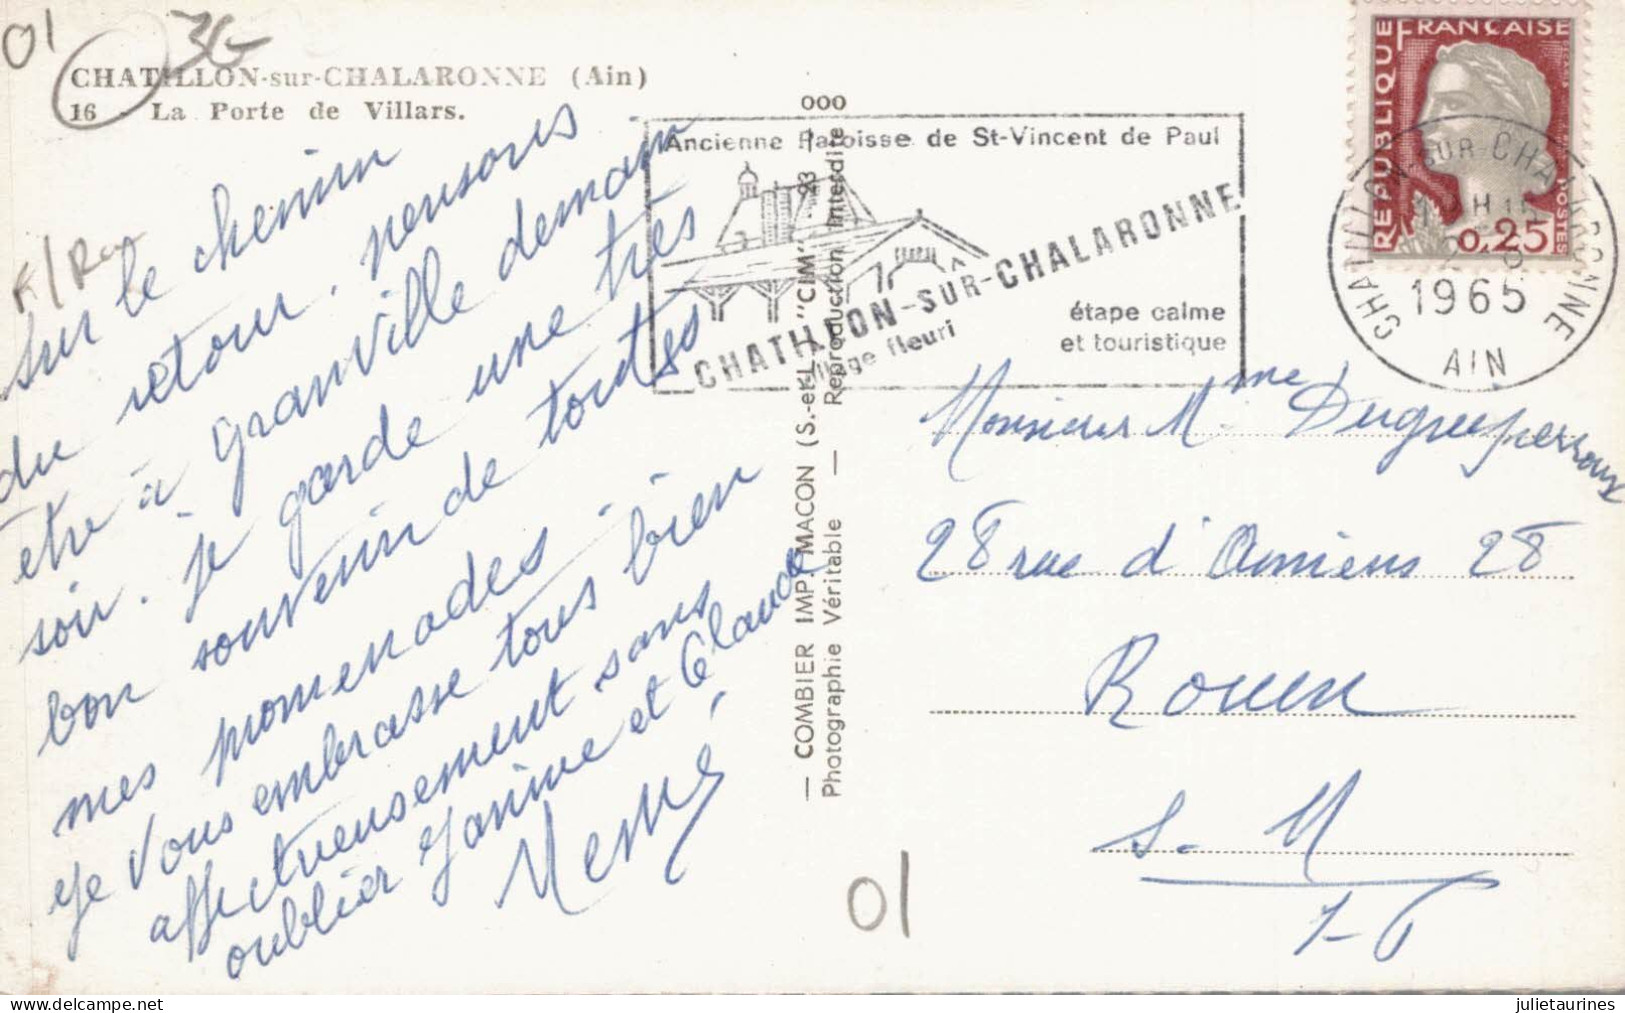 01
36
CHATILLON-sur-CHALARONNE (Ain)
16 - La Porte de Villars.
sur le chemin
du retour. pensons
être à Granville demain
soir. je garde une très
bon souvenir de toutes
mes promenades
je vous embrasse tous bien
affectueusement sans
oublier Janine et Claude
Mémé
000
Ancienne Paroisse de St-Vincent de Paul
CHATILLON-SUR-CHALARONNE
village fleuri
étape calme
et touristique
— COMBIER IMP. MACON (S.-et-L. "CIM" 23 —
Photographie Véritable — Reproduction Interdite
REPUBLIQUE FRANÇAISE
POSTES
0,25
CHATILLON-SUR-CHALARONNE
1965
AIN
Monsieur Mme Dugueyperroux
28 rue d'Amiens 28
Rouen
S. M
01
julietaurines